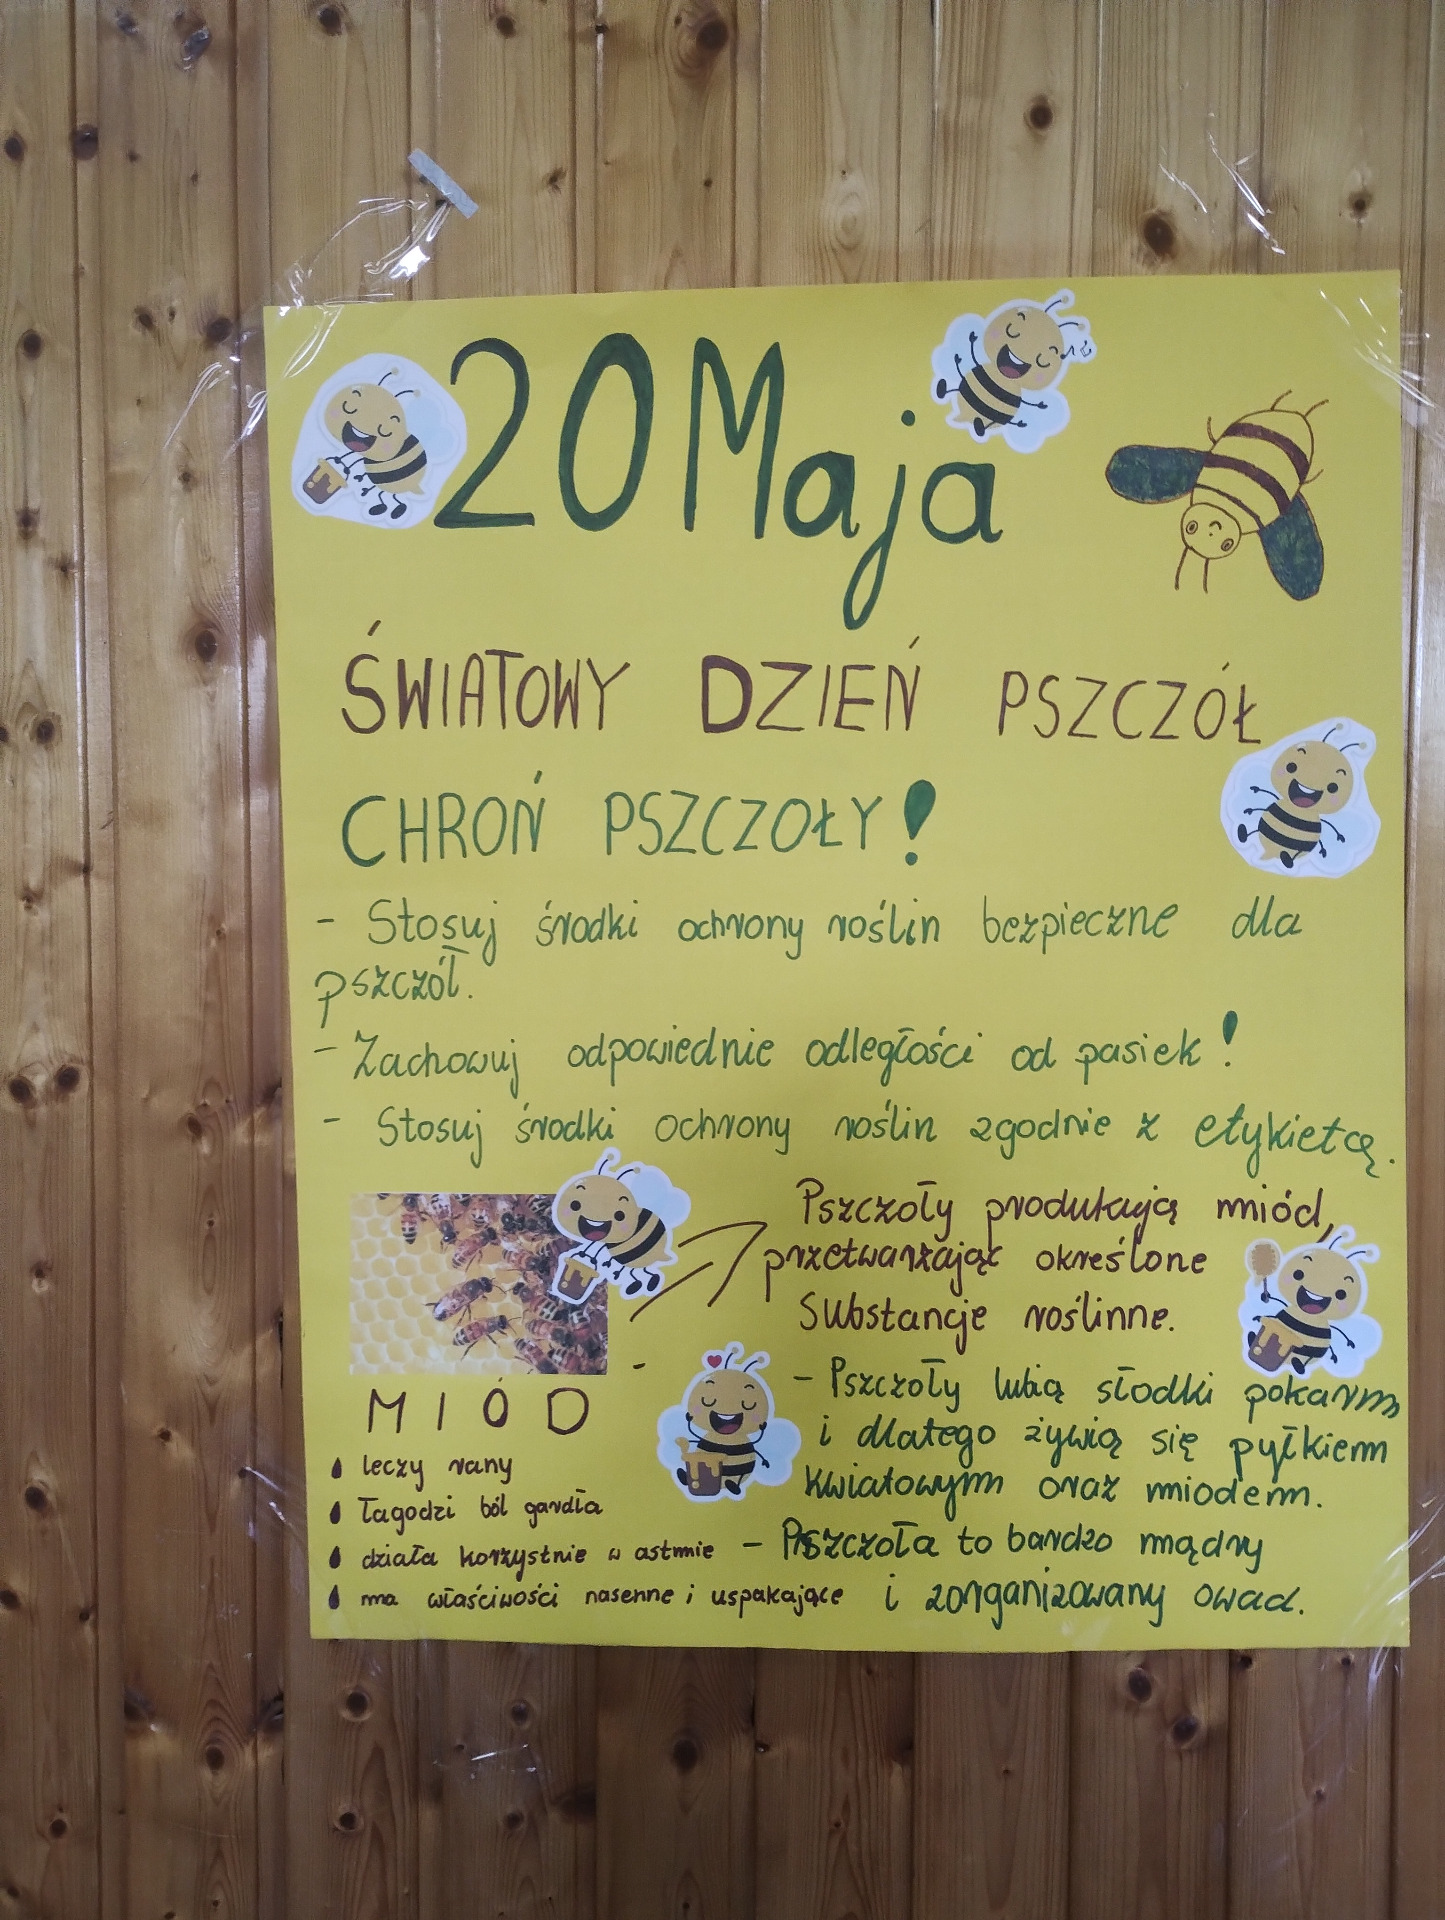 20 Maja
ŚWIATOWY DZIEŃ PSZCZÓŁ
CHROŃ PSZCZOŁY!
- Stosuj środki ochrony roślin bezpieczne dla
pszczół.
- Zachowuj odpowiednie odległości od pasiek!
- Stosuj środki ochrony roślin zgodnie z etykietą.
Pszczoły produkują miód,
przetwarzając określone
Substancje roślinne.
MIÓD
leczy rany
łagodzi ból gardła
działa korzystnie w astmie
ma właściwości nasenne i uspakające
- Pszczoły lubią słodki pokarm
i dlatego żywią się pyłkiem
kwiatowym oraz miodem.
- Pszczoła to bardzo mądry
i zorganizowany owad.